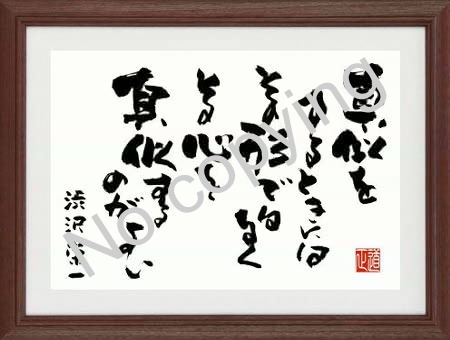 真似を
するときには
その形ではなく
その心を
真似する
のがよい
渋沢栄一
道正
No copying